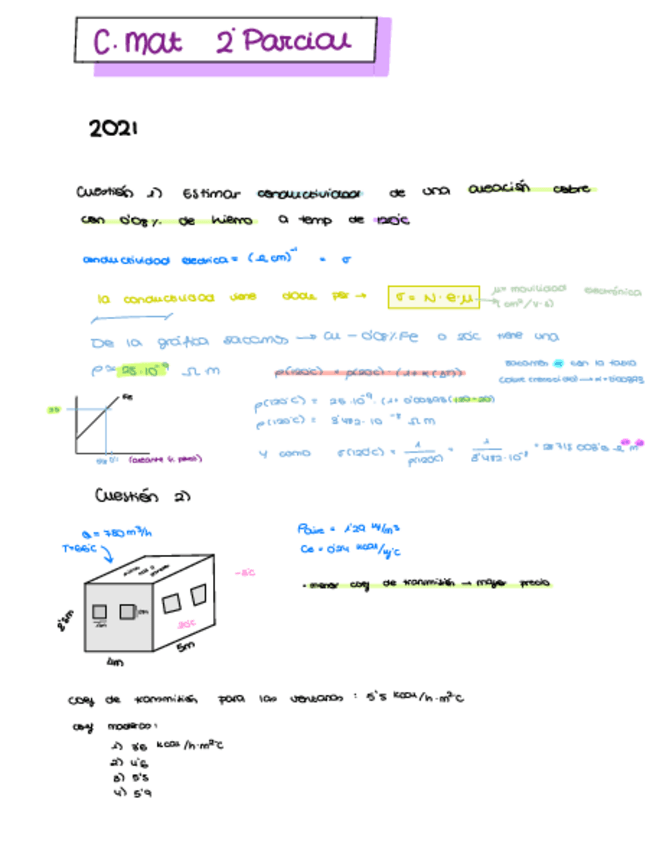 C. Mat 2º Parcial
2021
Cuestión 1) Estimar conductividad de una aleación cobre
con 0'08% de hierro a temp de 120ºC
conductividad electrica = (Ω cm)⁻¹ = σ
la conductividad viene dada por → σ = N·e·μ
μ = movilidad electrónica
(cm²/V·s)
De la gráfica sacamos → Cu - 0'08% Fe a 20ºC tiene una
ρ ≈ 25·10⁻⁹ Ω m
ρ(120ºC) = ρ(20ºC) · (1+α(ΔT))
sacamos α con la tabla
ρ(120ºC) = 25·10⁻⁹ · (1+ 0'00393(120-20)
ρ(120ºC) = 3'482·10⁻⁸ Ω m
y como σ(120ºC) = 1/ρ(120ºC) = 1/3'482·10⁻⁸
25
Fe
Cuestión 2)
Q = 780 m³/h
T=65ºC
-5ºC
20ºC
2'5m
4m
5m
Ce = 0'24 kcal/kgºC
· menor coef de transmisión → mayor precio
coef de transmisión para las ventanas : 5'5 kcal/h·m²ºC
coef maderas:
1) 3'6 kcal/h·m²ºC
2) 4'6
3) 5'5
4) 5'9